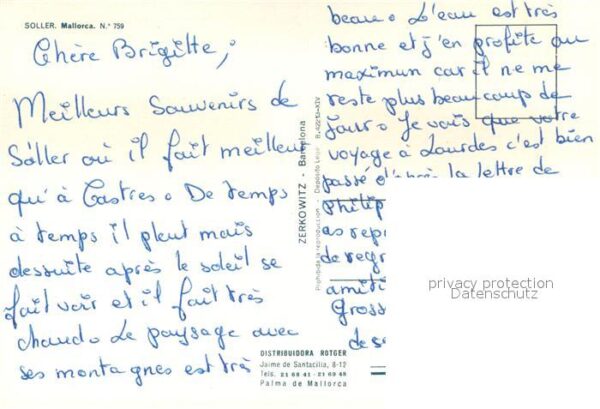 SOLLER. Mallorca. N.° 759
Chère Brigitte,
Meilleurs Souvenirs de
Sóller où il fait meilleur
qu'à Castres. De temps
à temps il pleut mais
dessuite après le soleil se
fait voir et il fait très
chaud. Le paysage avec
ses montagnes est très
beau. L'eau est très
bonne et j'en profite au
maximun car il ne me
reste plus beaucoup de
jour. Je vois que votre
voyage à Lourdes c'est bien
passé d'après la lettre de
Philip
as rep
de regr
amiti
Gross
de s
ZERKOWITZ - Barcelona
Prohibida la reproducción - Depósito Legal
DISTRIBUIDORA ROTGER
Jaime de Santacilia, 8-12
Tels. 21 68 41 - 21 69 48
Palma de Mallorca
privacy protection
Datenschutz